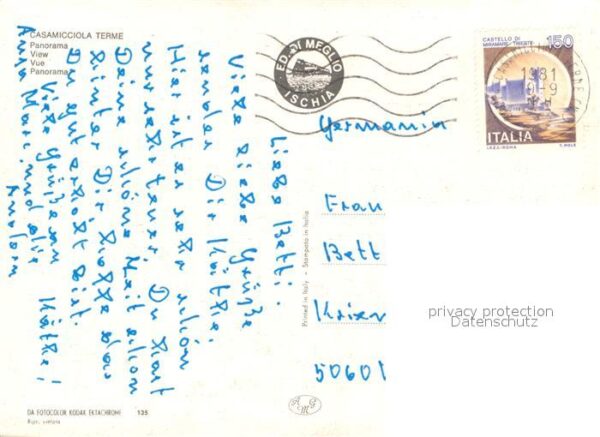 CASAMICCIOLA TERME
Panorama
View
Vue
Panorama
Liebe Betti!
Viele liebe Grüße
sendet Dir Käthe.
Hier ist es sehr schön
nur sehr teuer. Du hast
Deine schöne Zeit schon
hinter Dir, hoffe das
Du gut erholt bist.
Viele Grüße an
Anna Marc. und alle
Käthe!
ED. DI MEGLIO
ISCHIA
CASTELLO DI
MIRAMARE - TRIESTE
150
1981
ITALIA
I.P.Z.S. ROMA
Germania
Frau
Bett
Krier
50601
Printed in Italy - Stampato in Italia
privacy protection
Datenschutz
DA FOTOCOLOR KODAK EKTACHROME 135
Ripr. vietata